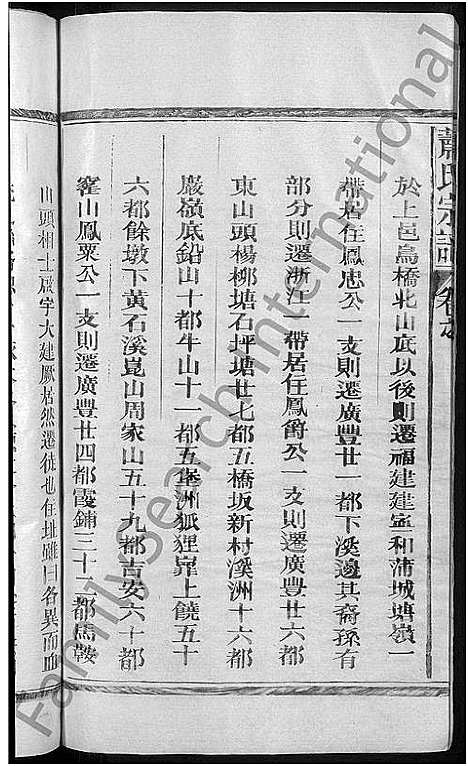 蕭氏宗譜 卷首
於上邑烏橋北山底以後則遷福建建寧和蒲城塘嶺一
帶居住鳳忠公一支則遷廣豐廿一都下溪邊其裔孫有
部分則遷浙江一帶居住鳳爵公一支則遷廣豐廿六都
東山頭楊柳塘石坪塘廿七都五橋坂新村溪洲十六都
巖嶺底鉛山十都牛山十一都五堡洲狐狸嶭上饒五十
六都餘墩下黃石溪崑山周家山五十九都吉安六十都
窰山鳳粟公一支則遷廣豐廿四都霞鋪三十二都馬鞍
山頭相土啟宇大建厥居然遷徙也住址雖曰各異而血
FamilySearch International